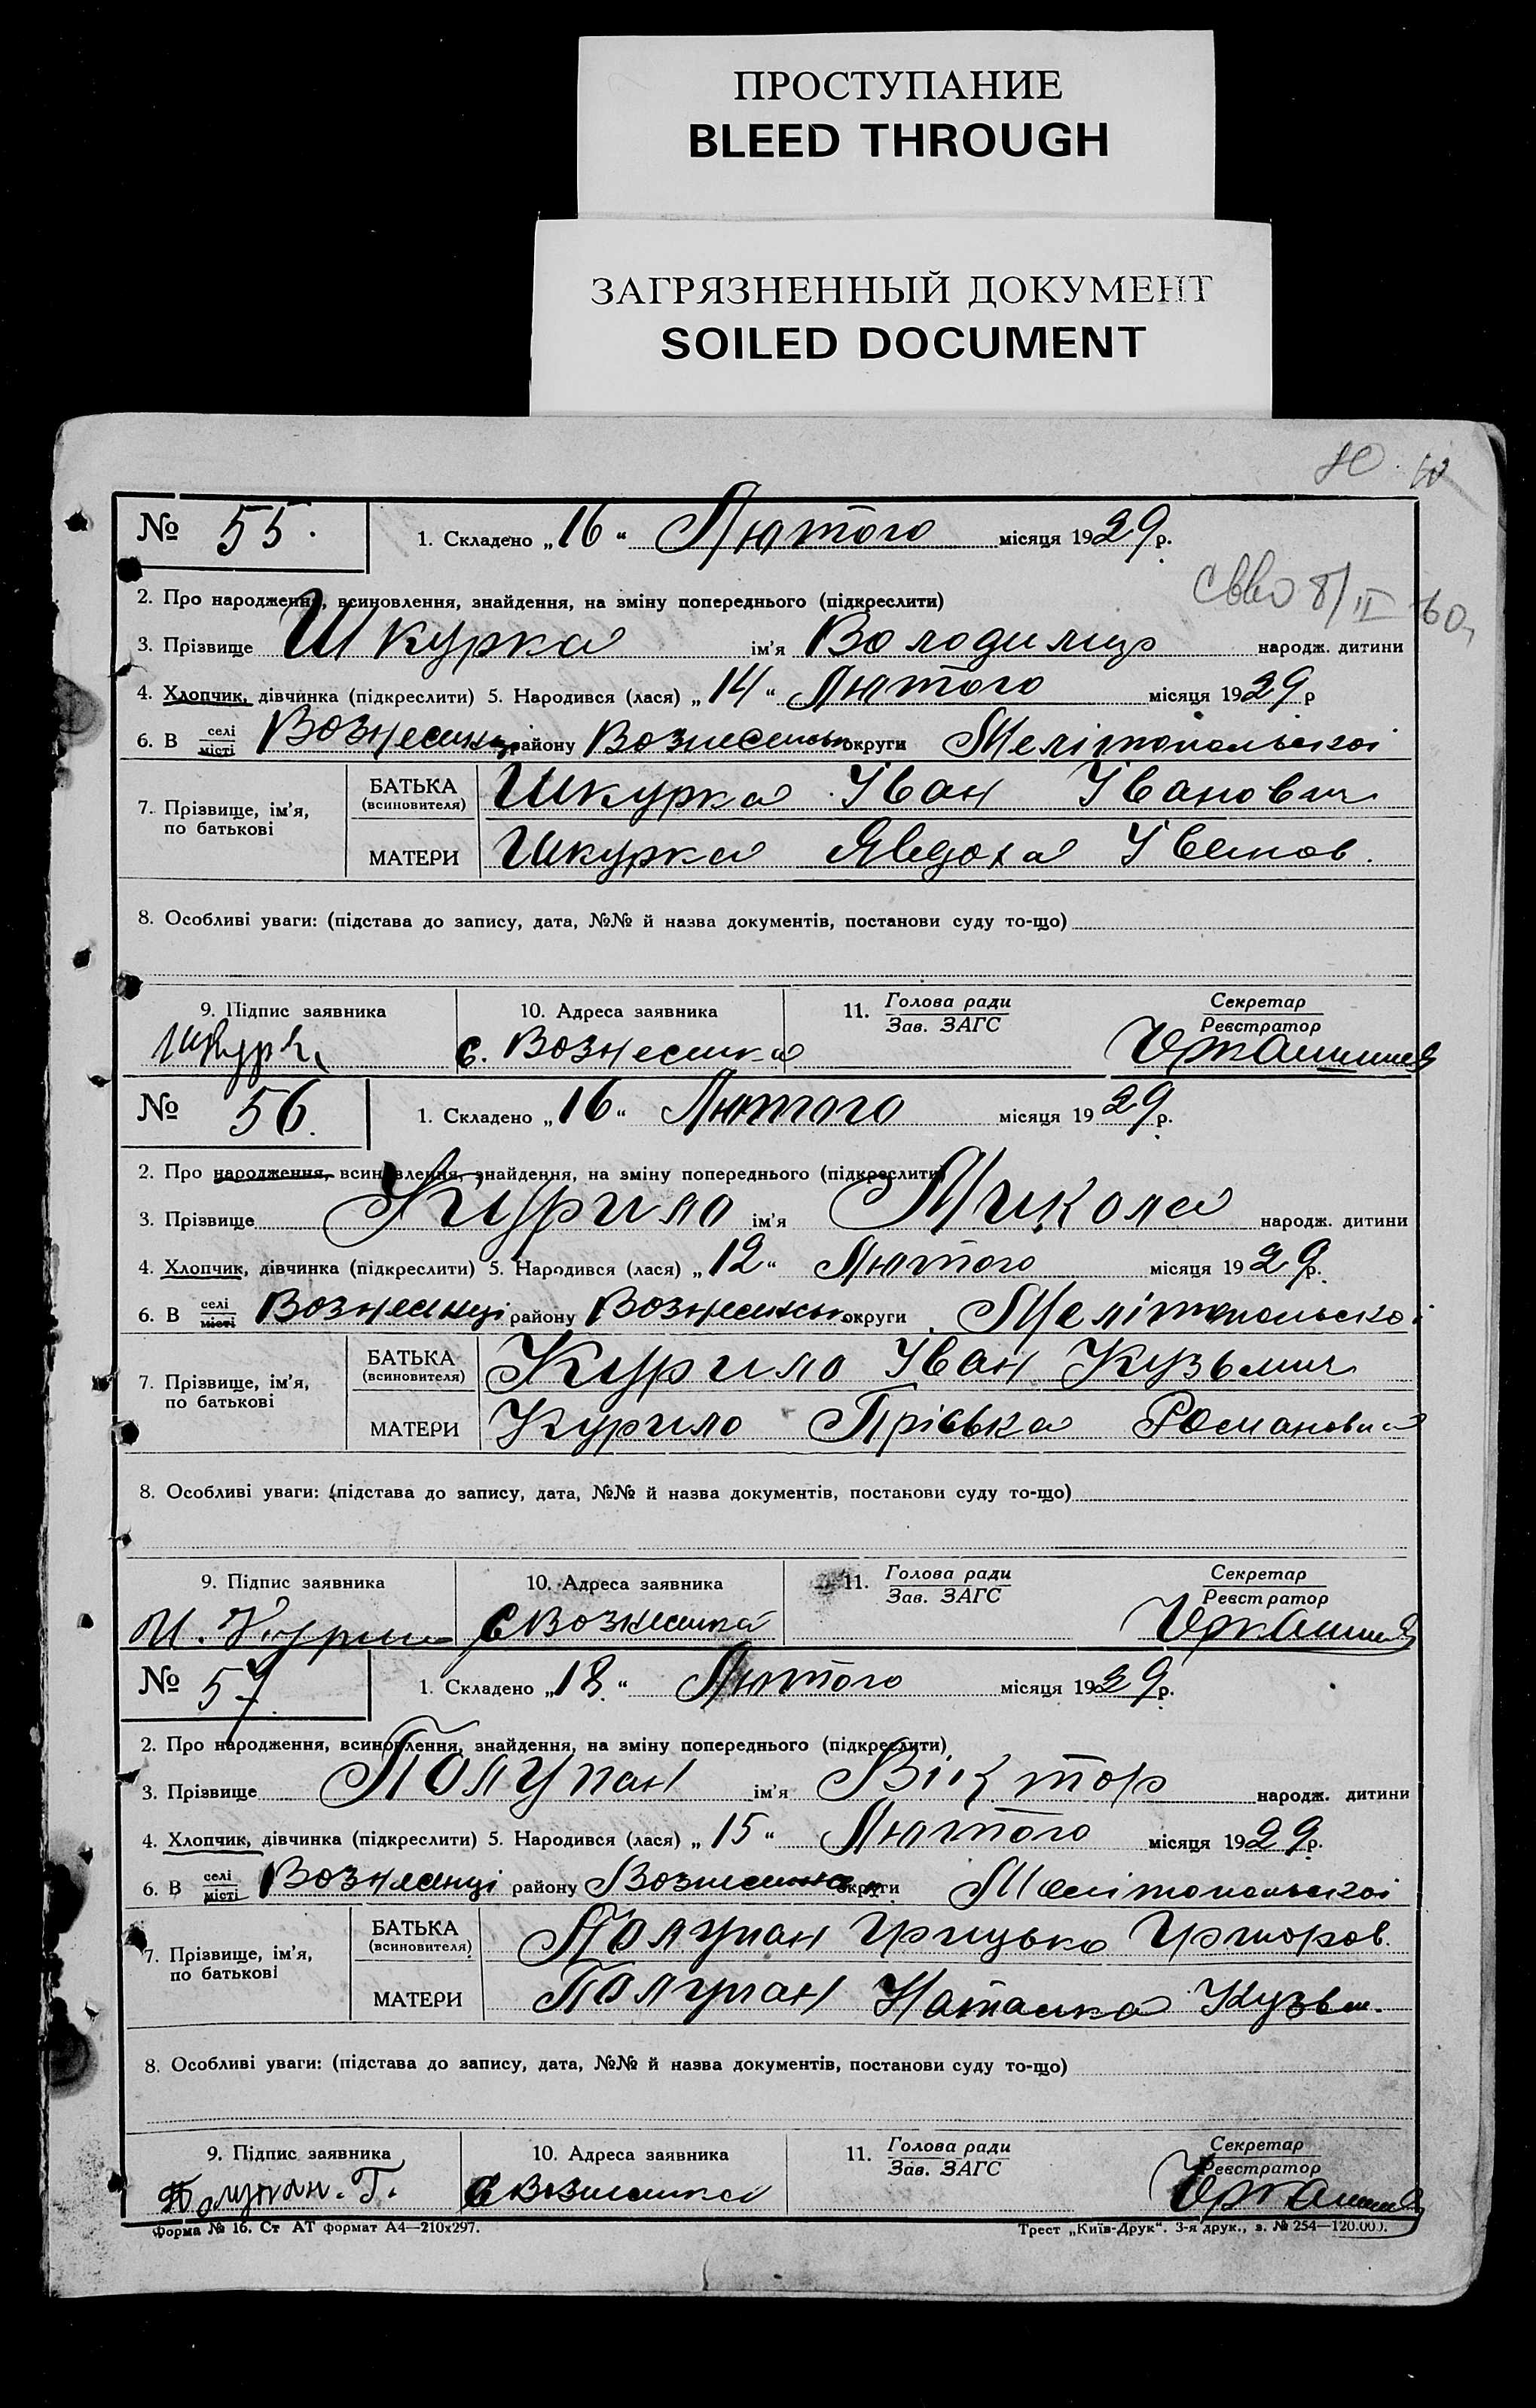 ПРОСТУПАНИЕ
BLEED THROUGH
ЗАГРЯЗНЕННЫЙ ДОКУМЕНТ
SOILED DOCUMENT
№ 55. 1. Складено „16“ Лютого місяця 1929 р.
8/II 60
2. Про народження, всиновлення, знайдення, на зміну попереднього (підкреслити)
3. Прізвище Шкурка ім'я Володимир народж. дитини
4. Хлопчик, дівчинка (підкреслити) 5. Народився (лася) „14“ Лютого місяця 1929 р
6. В селі місті Вознесенці району Вознесенськ округи Мелітопольскоі
7. Прізвище, ім'я, по батькові
БАТЬКА (всиновителя) Шкурка Іван Іванович
МАТЕРИ Шкурка Явдоха Іванов.
8. Особливі уваги: (підстава до запису, дата, №№ й назва документів, постанови суду то-що)
9. Підпис заявника 10. Адреса заявника 11. Голова ради Зав. ЗАГС Секретар Реєстратор
с. Вознесенка
№ 56. 1. Складено „16“ Лютого місяця 1929 р.
2. Про народження, всиновлення, знайдення, на зміну попереднього (підкреслити)
3. Прізвище Курило ім'я Микола народж. дитини
4. Хлопчик, дівчинка (підкреслити) 5. Народився (лася) „12“ Лютого місяця 1929 р.
6. В селі місті Вознесенці району Вознесенськ округи Мелітопольскоі
7. Прізвище, ім'я, по батькові
БАТЬКА (всиновителя) Курило Іван Кузьмич
МАТЕРИ Курило Пріська Романовна
8. Особливі уваги: (підстава до запису, дата, №№ й назва документів, постанови суду то-що)
9. Підпис заявника 10. Адреса заявника 11. Голова ради Зав. ЗАГС Секретар Реєстратор
с Вознесенка
№ 57. 1. Складено „18.“ Лютого місяця 1929 р.
2. Про народження, всиновлення, знайдення, на зміну попереднього (підкреслити)
3. Прізвище Полупан ім'я Віктор народж. дитини
4. Хлопчик, дівчинка (підкреслити) 5. Народився (лася) „15“ Лютого місяця 1929 р.
6. В селі місті Вознесенці району Вознесенськ округи Мелітопольскоі
7. Прізвище, ім'я, по батькові
БАТЬКА (всиновителя) Полупан Грицько Григоров.
МАТЕРИ Полупан Наталка Кузьм.
8. Особливі уваги: (підстава до запису, дата, №№ й назва документів, постанови суду то-що)
9. Підпис заявника 10. Адреса заявника 11. Голова ради Зав. ЗАГС Секретар Реєстратор
Полупан. Г. с Вознесенка
Форма № 16. Ст АТ формат А4—210х297. Трест „Київ-Друк“. 3-я друк., з. № 254—120.000.